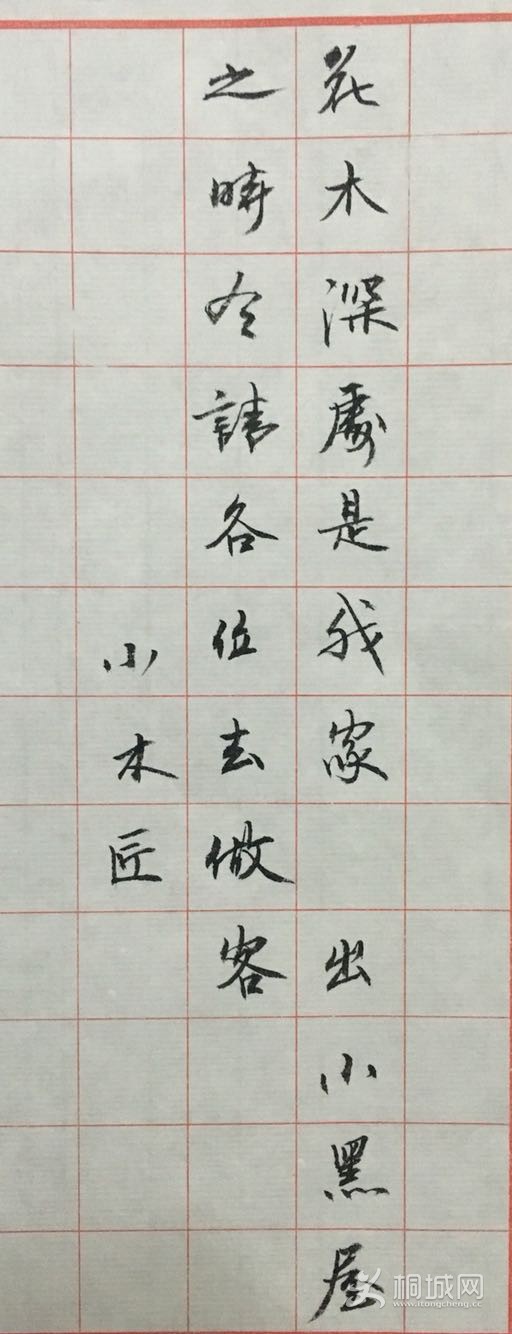 花木深處是我家 出小黑屋
之時今請各位去做客
小木匠
桐城网
www.itongcheng.cc